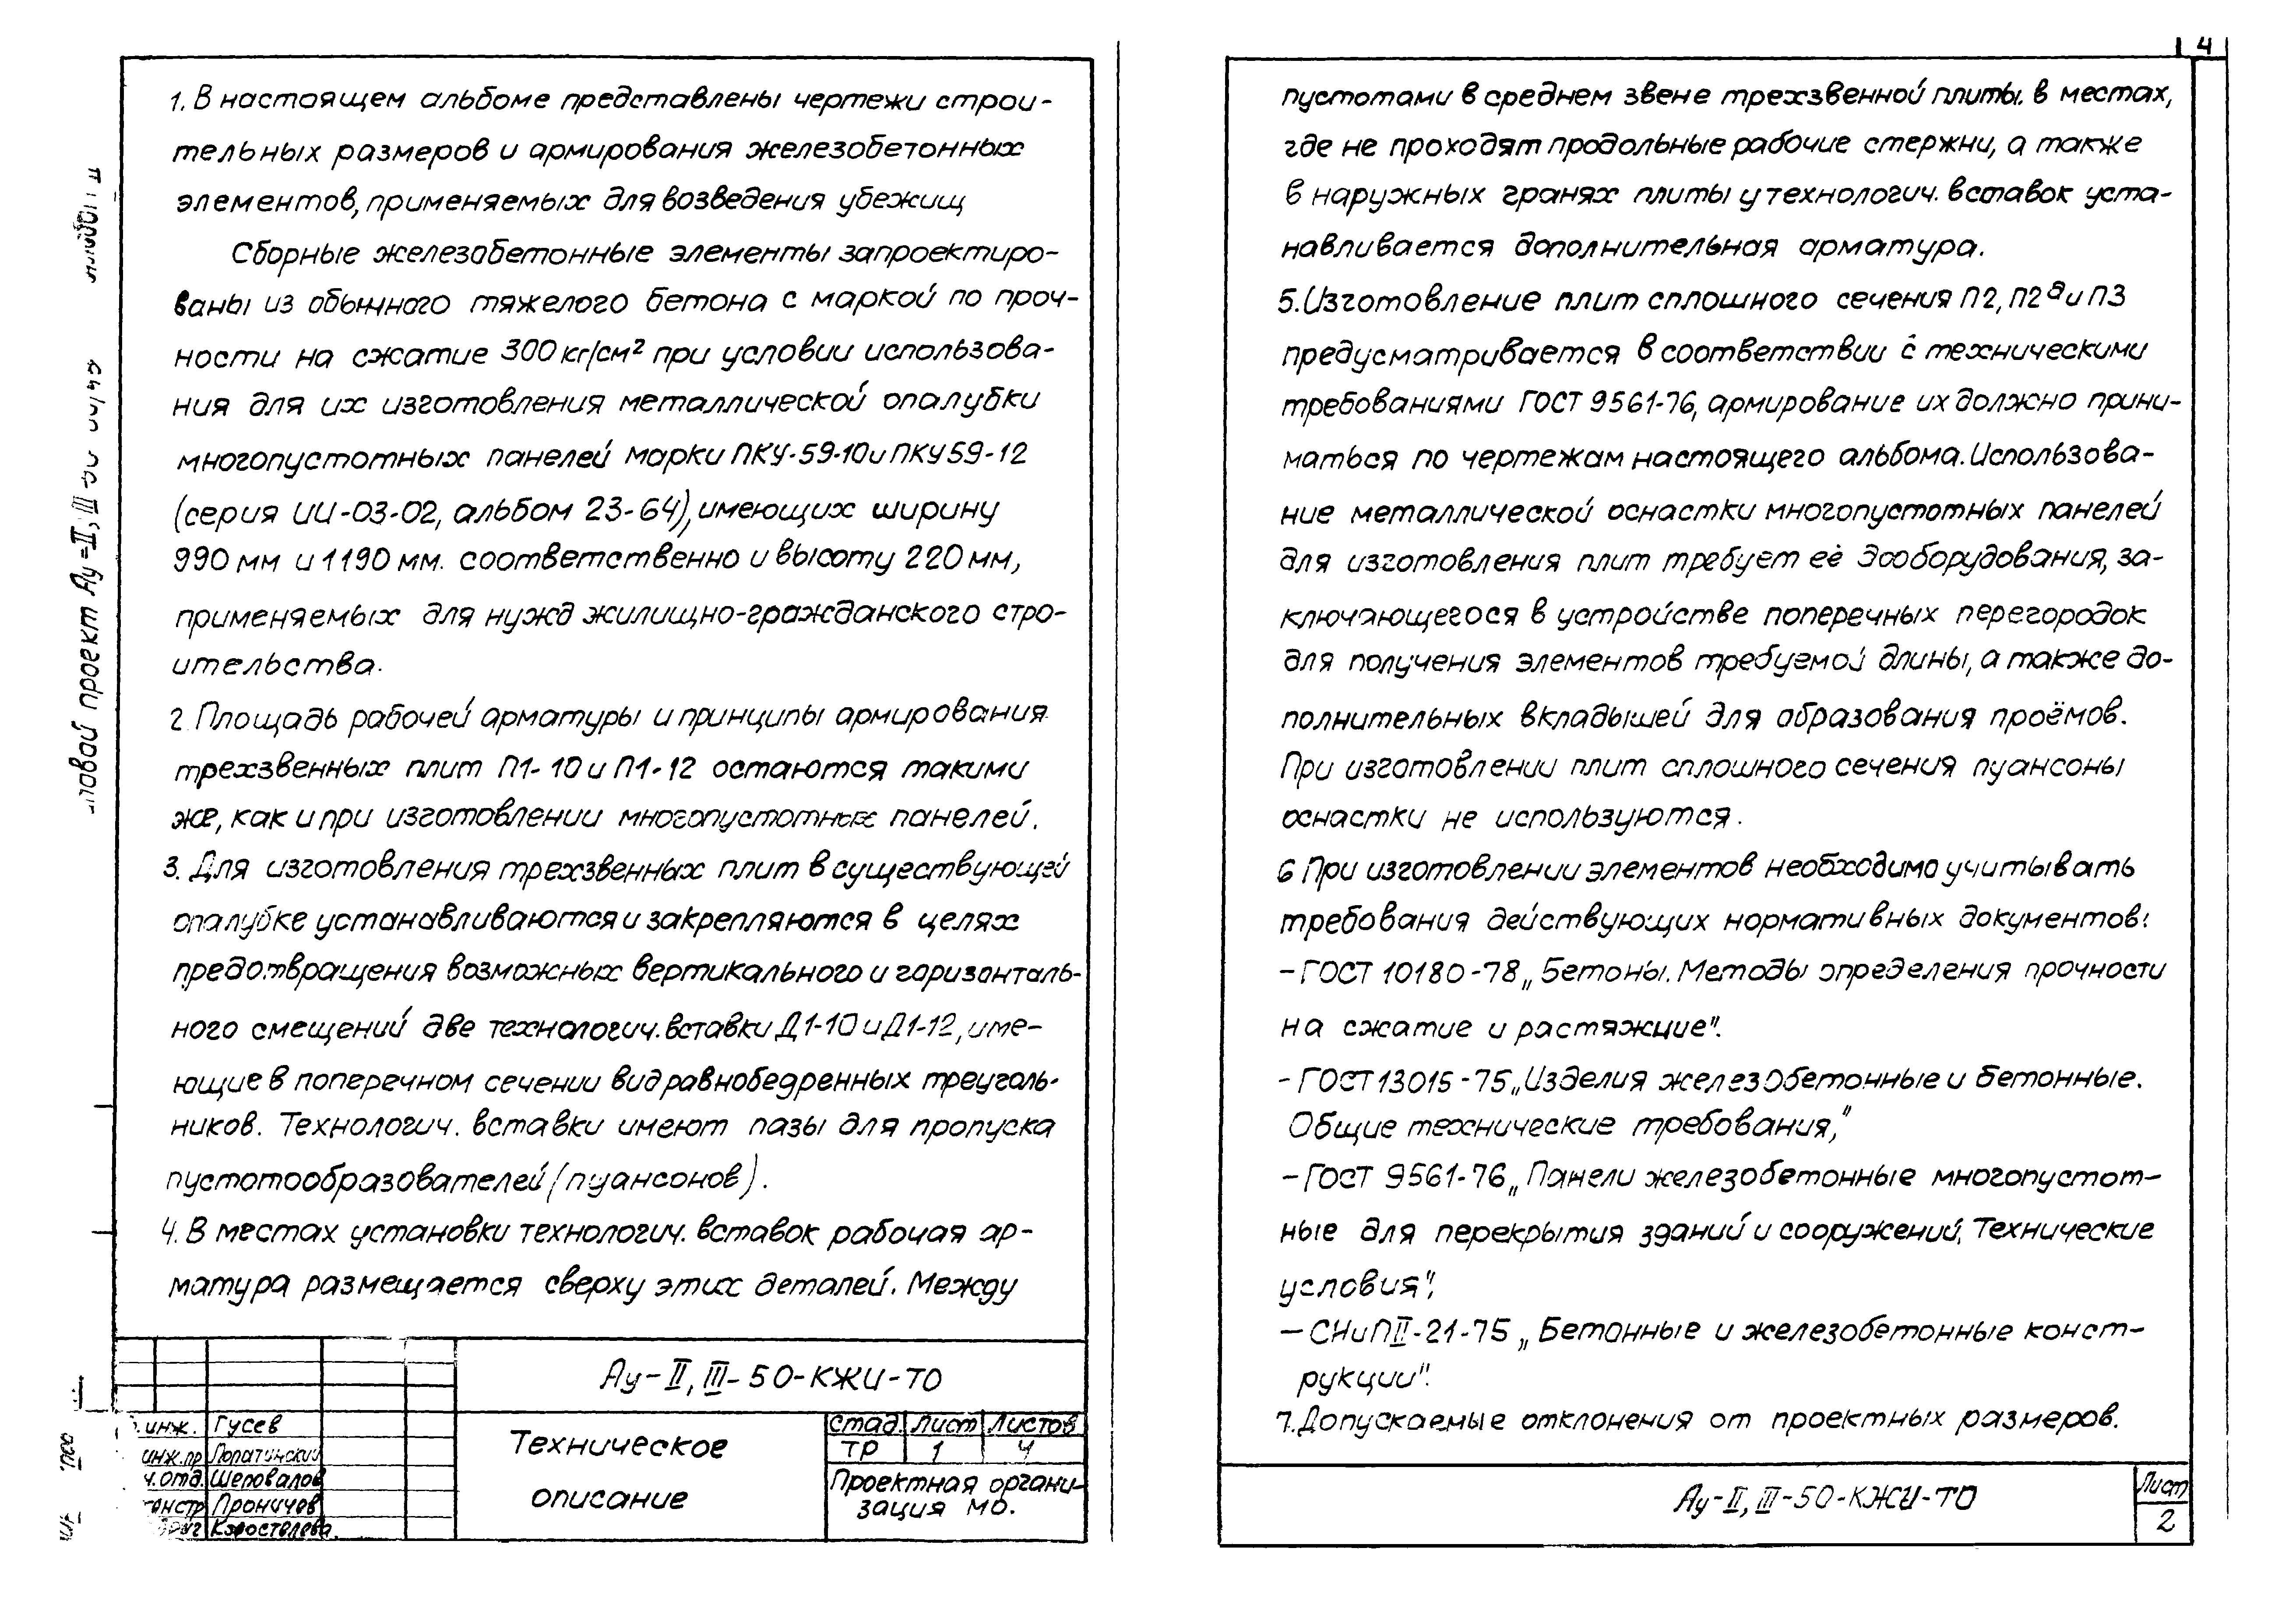 1. В настоящем альбоме представлены чертежи строи-
тельных размеров и армирования железобетонных
элементов, применяемых для возведения убежищ
Сборные железобетонные элементы запроектиро-
ваны из обычного тяжелого бетона с маркой по проч-
ности на сжатие 300 кг/см² при условии использова-
ния для их изготовления металлической опалубки
многопустотных панелей марки ПКУ-59-10 и ПКУ59-12
(серия ИИ-03-02, альбом 23-64), имеющих ширину
990 мм и 1190 мм. соответственно и высоту 220 мм,
применяемых для нужд жилищно-гражданского стро-
ительства.
2. Площадь рабочей арматуры и принципы армирования
трехзвенных плит П1-10 и П1-12 остаются такими
же, как и при изготовлении многопустотных панелей.
3. Для изготовления трехзвенных плит в существующей
опалубке устанавливаются и закрепляются в целях
предотвращения возможных вертикального и горизонталь-
ного смещений две технологич. вставки Д1-10 и Д1-12, име-
ющие в поперечном сечении вид равнобедренных треуголь-
ников. Технологич. вставки имеют пазы для пропуска
пустотообразователей (пуансонов).
4. В местах установки технологич. вставок рабочая ар-
матура размещается сверху этих деталей. Между
Ау-II, III-50-КЖИ-ТО
инж. Гусев
инж.пр
отд. Шеровалов
констр Проничев
Техническое
описание
Стад. Лист Листов
ТР 1 4
Проектная органи-
зация МО.
повой проект Ау-II, III
4
пустотами в среднем звене трехзвенной плиты. в местах,
где не проходят продольные рабочие стержни, а также
в наружных гранях плиты у технологич. вставок уста-
навливается дополнительная арматура.
5. Изготовление плит сплошного сечения П2, П2а и П3
предусматривается в соответствии с техническими
требованиями ГОСТ 9561-76, армирование их должно прини-
маться по чертежам настоящего альбома. Использова-
ние металлической оснастки многопустотных панелей
для изготовления плит требует её дооборудования, за-
ключающегося в устройстве поперечных перегородок
для получения элементов требуемой длины, а также до-
полнительных вкладышей для образования проёмов.
При изготовлении плит сплошного сечения пуансоны
оснастки не используются.
6 При изготовлении элементов необходимо учитывать
требования действующих нормативных документов:
- ГОСТ 10180-78 „Бетоны. Методы определения прочности
на сжатие и растяжцие".
- ГОСТ 13015-75 „Изделия железобетонные и бетонные.
Общие технические требования,"
- ГОСТ 9561-76 „Панели железобетонные многопустот-
ные для перекрытия зданий и сооружений. Технические
условия",
- СНиП II-21-75 „Бетонные и железобетонные конст-
рукции".
7. Допускаемые отклонения от проектных размеров.
Ау-II, III-50-КЖИ-ТО
Лист
2